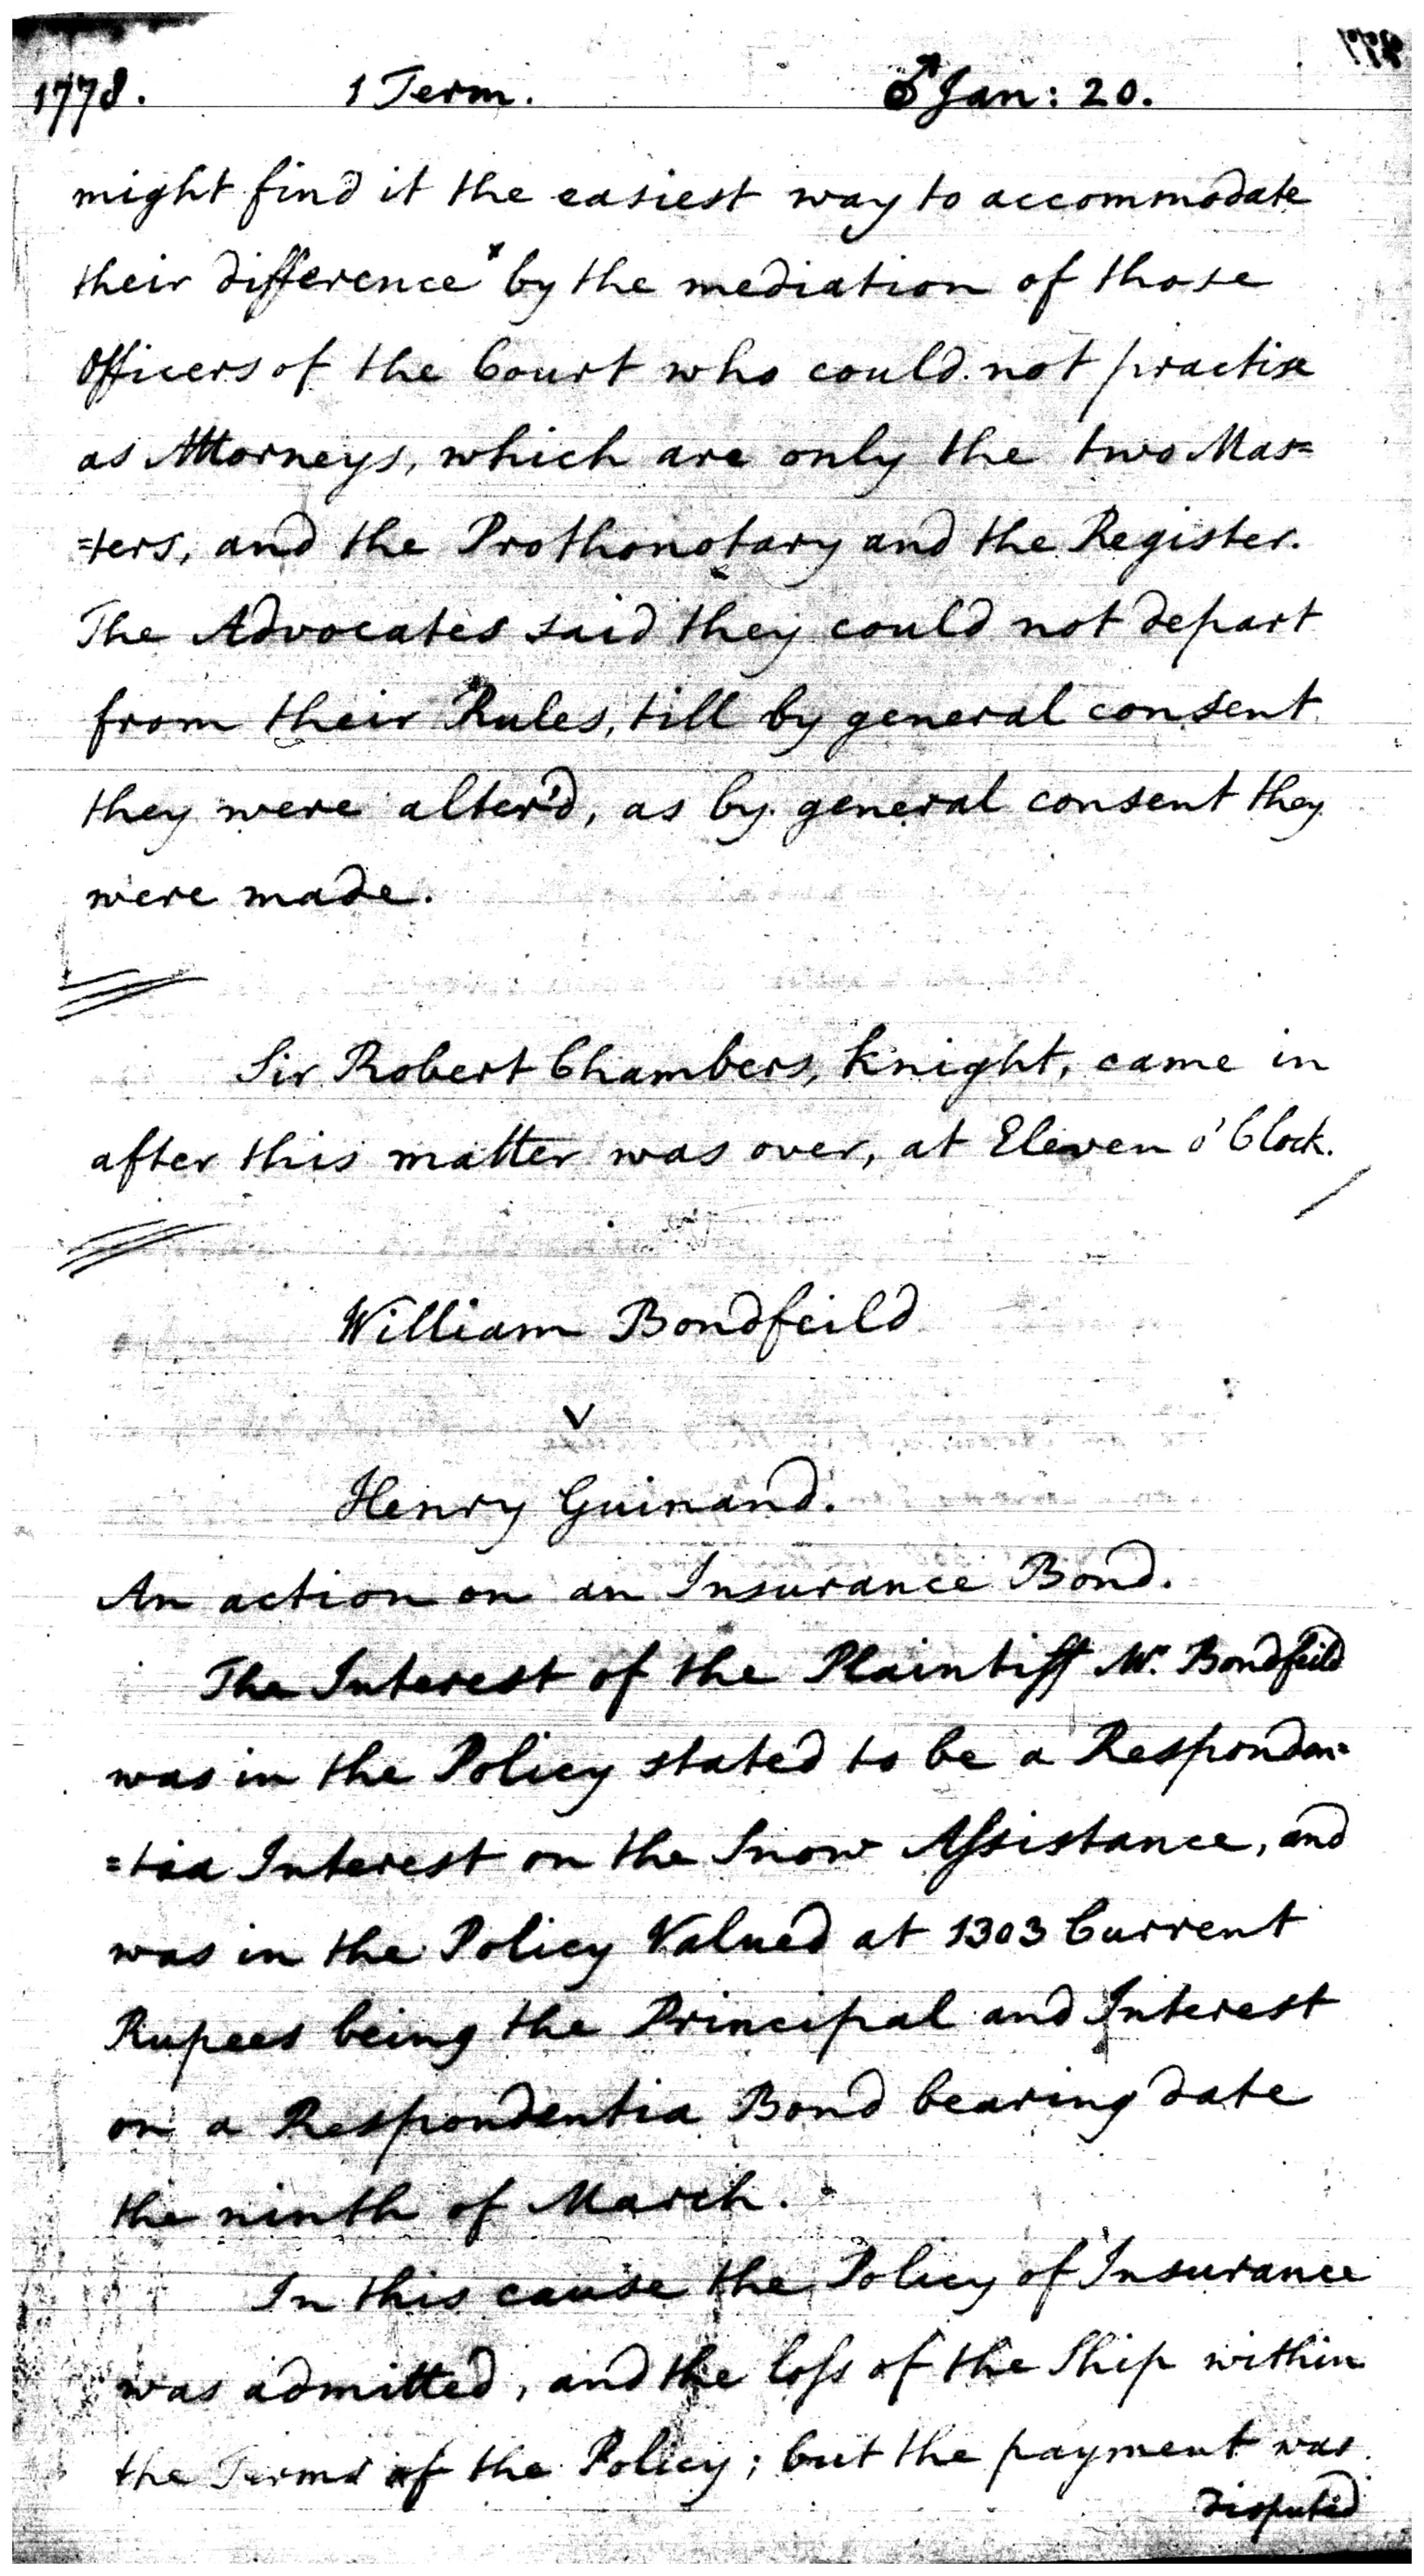 1778. 1 Term. ♂ Jan: 20.
might find it the easiest way to accommodate
their difference x by the mediation of those
Officers of the Court who could not practise
as Attorneys, which are only the two Mas=
=ters, and the Prothonotary and the Register.
The Advocates said they could not depart
from their Rules, till by general consent
they were alter'd, as by general consent they
were made.
Sir Robert Chambers, Knight, came in
after this matter was over, at Eleven o'Clock.
William Bondfeild
v
Henry Guinand.
An action on an Insurance Bond.
The Interest of the Plaintiff Mr. Bondfeild
was in the Policy stated to be a Responden=
=tia Interest on the Snow Aſsistance, and
was in the Policy Valued at 1303 Current
Rupees being the Principal and Interest
on a Respondentia Bond bearing date
the ninth of March.
In this cause the Policy of Insurance
was admitted, and the loſs of the Ship within
the Terms of the Policy; but the payment was
disputed